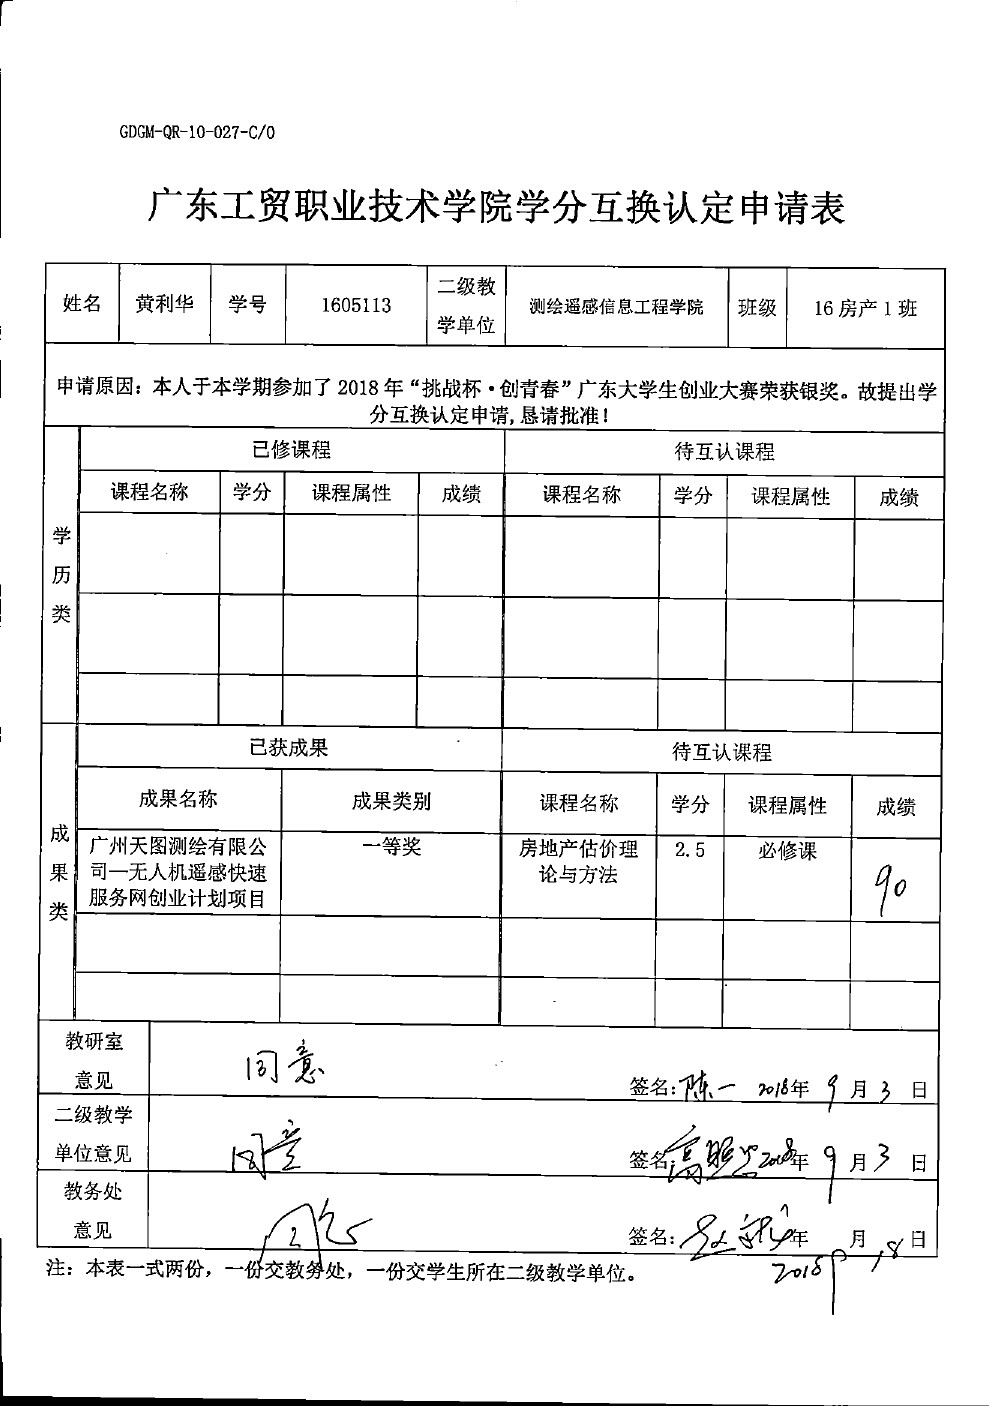 GDGM-QR-10-027-C/0
广东工贸职业技术学院学分互换认定申请表
姓名 黄利华 学号 1605113 二级教学单位 测绘遥感信息工程学院 班级 16房产1班
申请原因：本人于本学期参加了2018年“挑战杯·创青春”广东大学生创业大赛荣获银奖。故提出学
分互换认定申请,恳请批准！
学历类
已修课程 待互认课程
课程名称 学分 课程属性 成绩 课程名称 学分 课程属性 成绩
成果类
已获成果 待互认课程
成果名称 成果类别 课程名称 学分 课程属性 成绩
广州天图测绘有限公 一等奖 房地产估价理 2.5 必修课 90
司—无人机遥感快速 论与方法
服务网创业计划项目
教研室
意见 同意 签名：陈一 2018年9月3日
二级教学
单位意见 同意 签名： 2018年9月3日
教务处
意见 同意 签名： 年 月 日
2018 9 18
注：本表一式两份，一份交教务处，一份交学生所在二级教学单位。